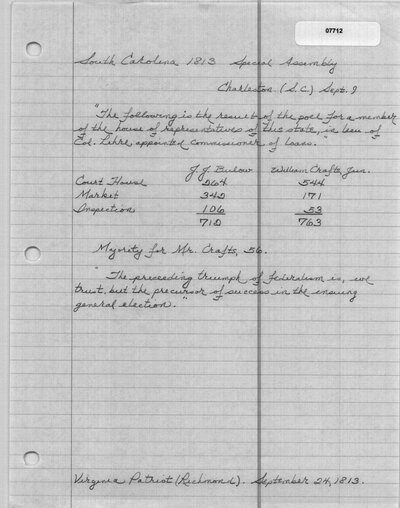 07712
South Carolina 1813 Special Assembly
Charleston (S.C.) Sept. 9
"The following is the result of the poll for a member
of the house of representatives of this state, in lieu of
Col. Lehre, appointed commissioner of loans."
J J Bulow William Crafts, Jun.
Court House 264 544
Market 342 171
Inspection 106 53
712 768
Majority for Mr. Crafts, 56.
"The preceeding triumph of federalism is, we
trust, but the precursor of success in the ensuing
general election."
Virginia Patriot (Richmond). September 24, 1813.